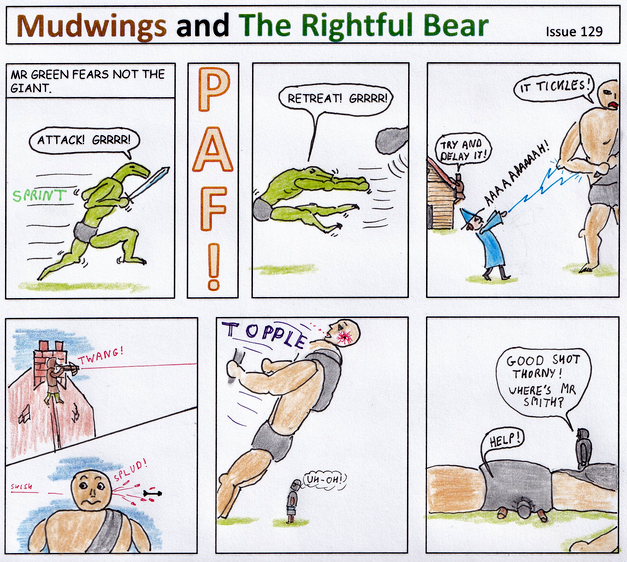 Mudwings and The Rightful Bear
Issue 129
MR GREEN FEARS NOT THE
GIANT.
ATTACK! GRRRR!
SPRINT
PAF!
RETREAT! GRRRR!
IT TICKLES!
TRY AND
DELAY IT!
AAAAAAAAAH!
TWANG!
SWISH
SPLUD!
TOPPLE
UH-OH!
GOOD SHOT
THORNY!
WHERE'S MR
SMITH?
HELP!